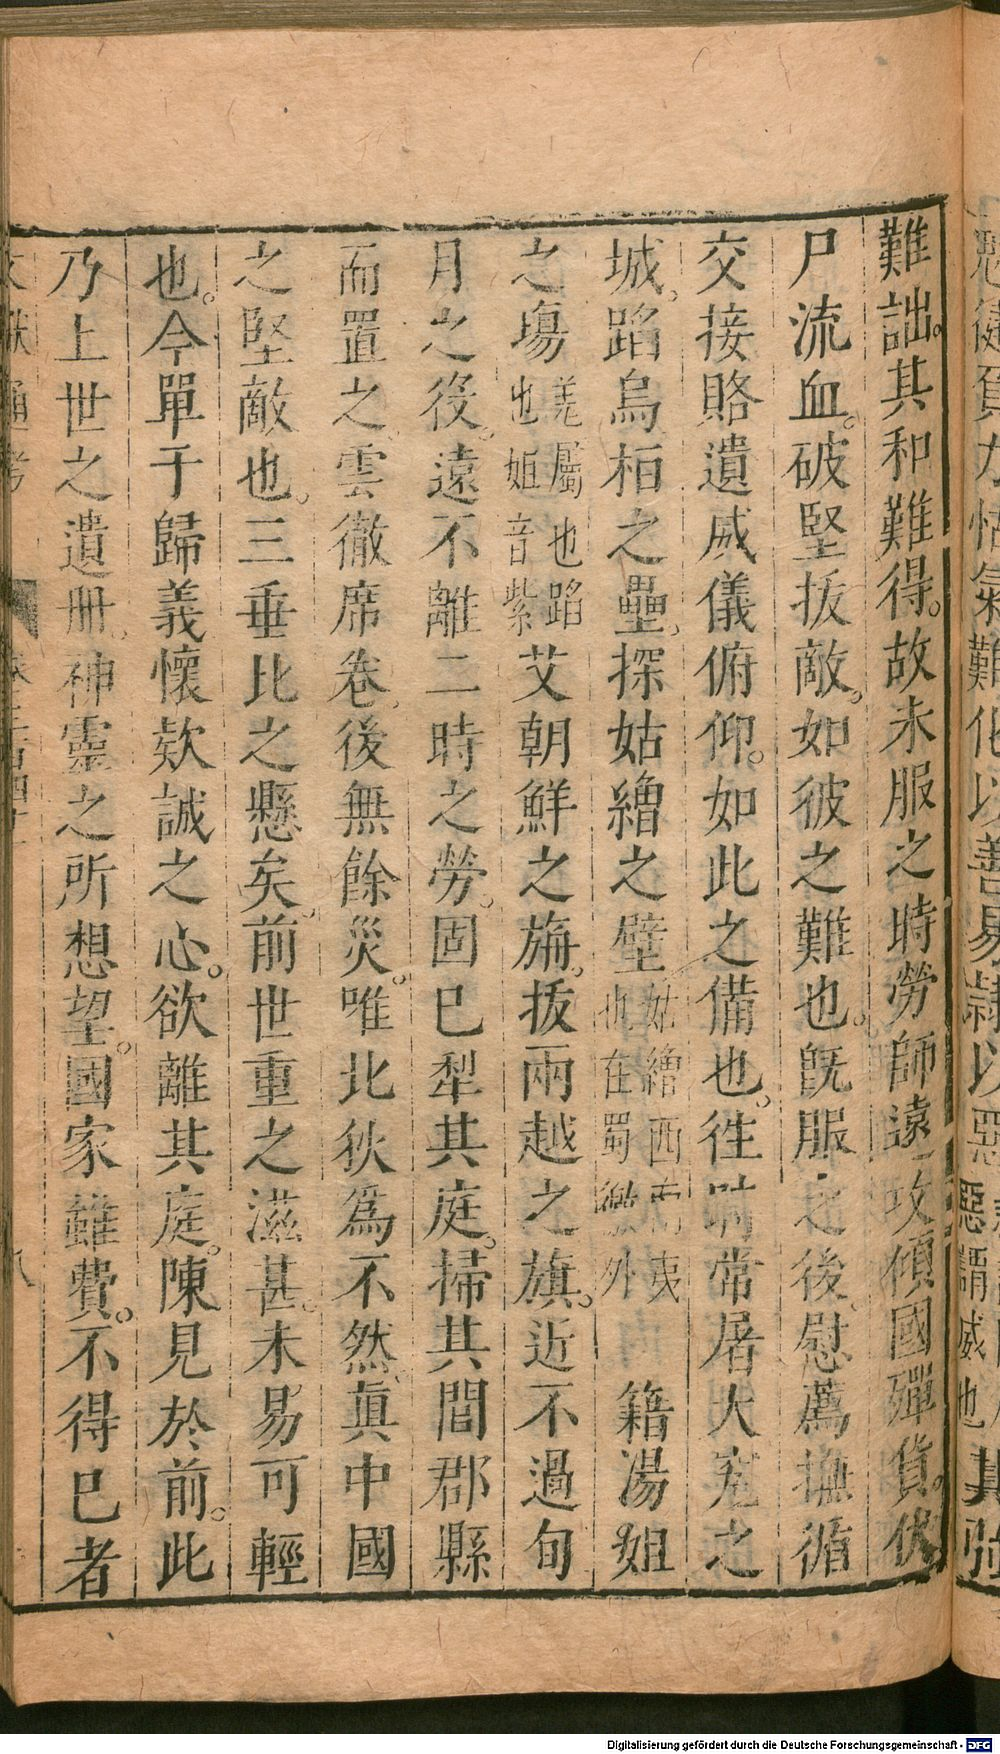 難詘。其和難得。故未服之時勞師遠攻傾國殫貨。伏
尸流血。破堅拔敵。如彼之難也。旣服之後。慰薦撫循
交接賂遺威儀俯仰。如此之備也。徃時常屠大宛之
城。蹈烏桓之壘。探姑繒之壁姑繒西南夷也在蜀徼外籍湯姐
之塲羌屬也蹈也姐音紫艾朝鮮之旃。拔兩越之旗。近不過旬
月之役。遠不離二時之勞。固已犁其庭。掃其閭郡縣
而置之。雲徹席卷。後無餘災。唯北狄爲不然。眞中國
之堅敵也。三垂比之懸矣。前世重之滋甚。未易可輕
也。今單于歸義懷欵誠之心。欲離其庭。陳見於前。此
乃上世之遺册。神靈之所想望。國家雖費。不得已者
文獻通考
Digitalisierung gefördert durch die Deutsche Forschungsgemeinschaft - DFG